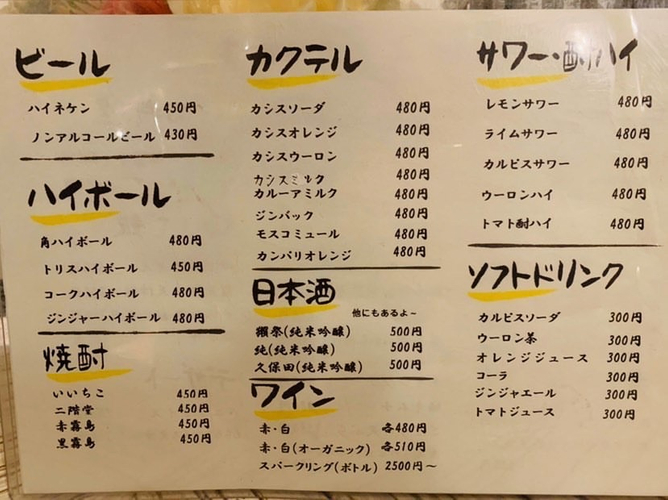 ビール
ハイネケン 450円
ノンアルコールビール 430円
ハイボール
角ハイボール 480円
トリスハイボール 450円
コークハイボール 480円
ジンジャーハイボール 480円
焼酎
いいちこ 450円
二階堂 450円
赤霧島 450円
黒霧島 450円
カクテル
カシスソーダ 480円
カシスオレンジ 480円
カシスウーロン 480円
カシスミルク 480円
カルーアミルク 480円
ジンバック 480円
モスコミュール 480円
カンパリオレンジ 480円
日本酒
他にもあるよ~
獺祭(純米吟醸) 500円
純(純米吟醸) 500円
久保田(純米吟醸) 500円
ワイン
赤・白 各480円
赤・白(オーガニック) 各510円
スパークリング(ボトル) 2500円~
サワー・酎ハイ
レモンサワー 480円
ライムサワー 480円
カルピスサワー 480円
ウーロンハイ 480円
トマト酎ハイ 480円
ソフトドリンク
カルピスソーダ 300円
ウーロン茶 300円
オレンジジュース 300円
コーラ 300円
ジンジャエール 300円
トマトジュース 300円